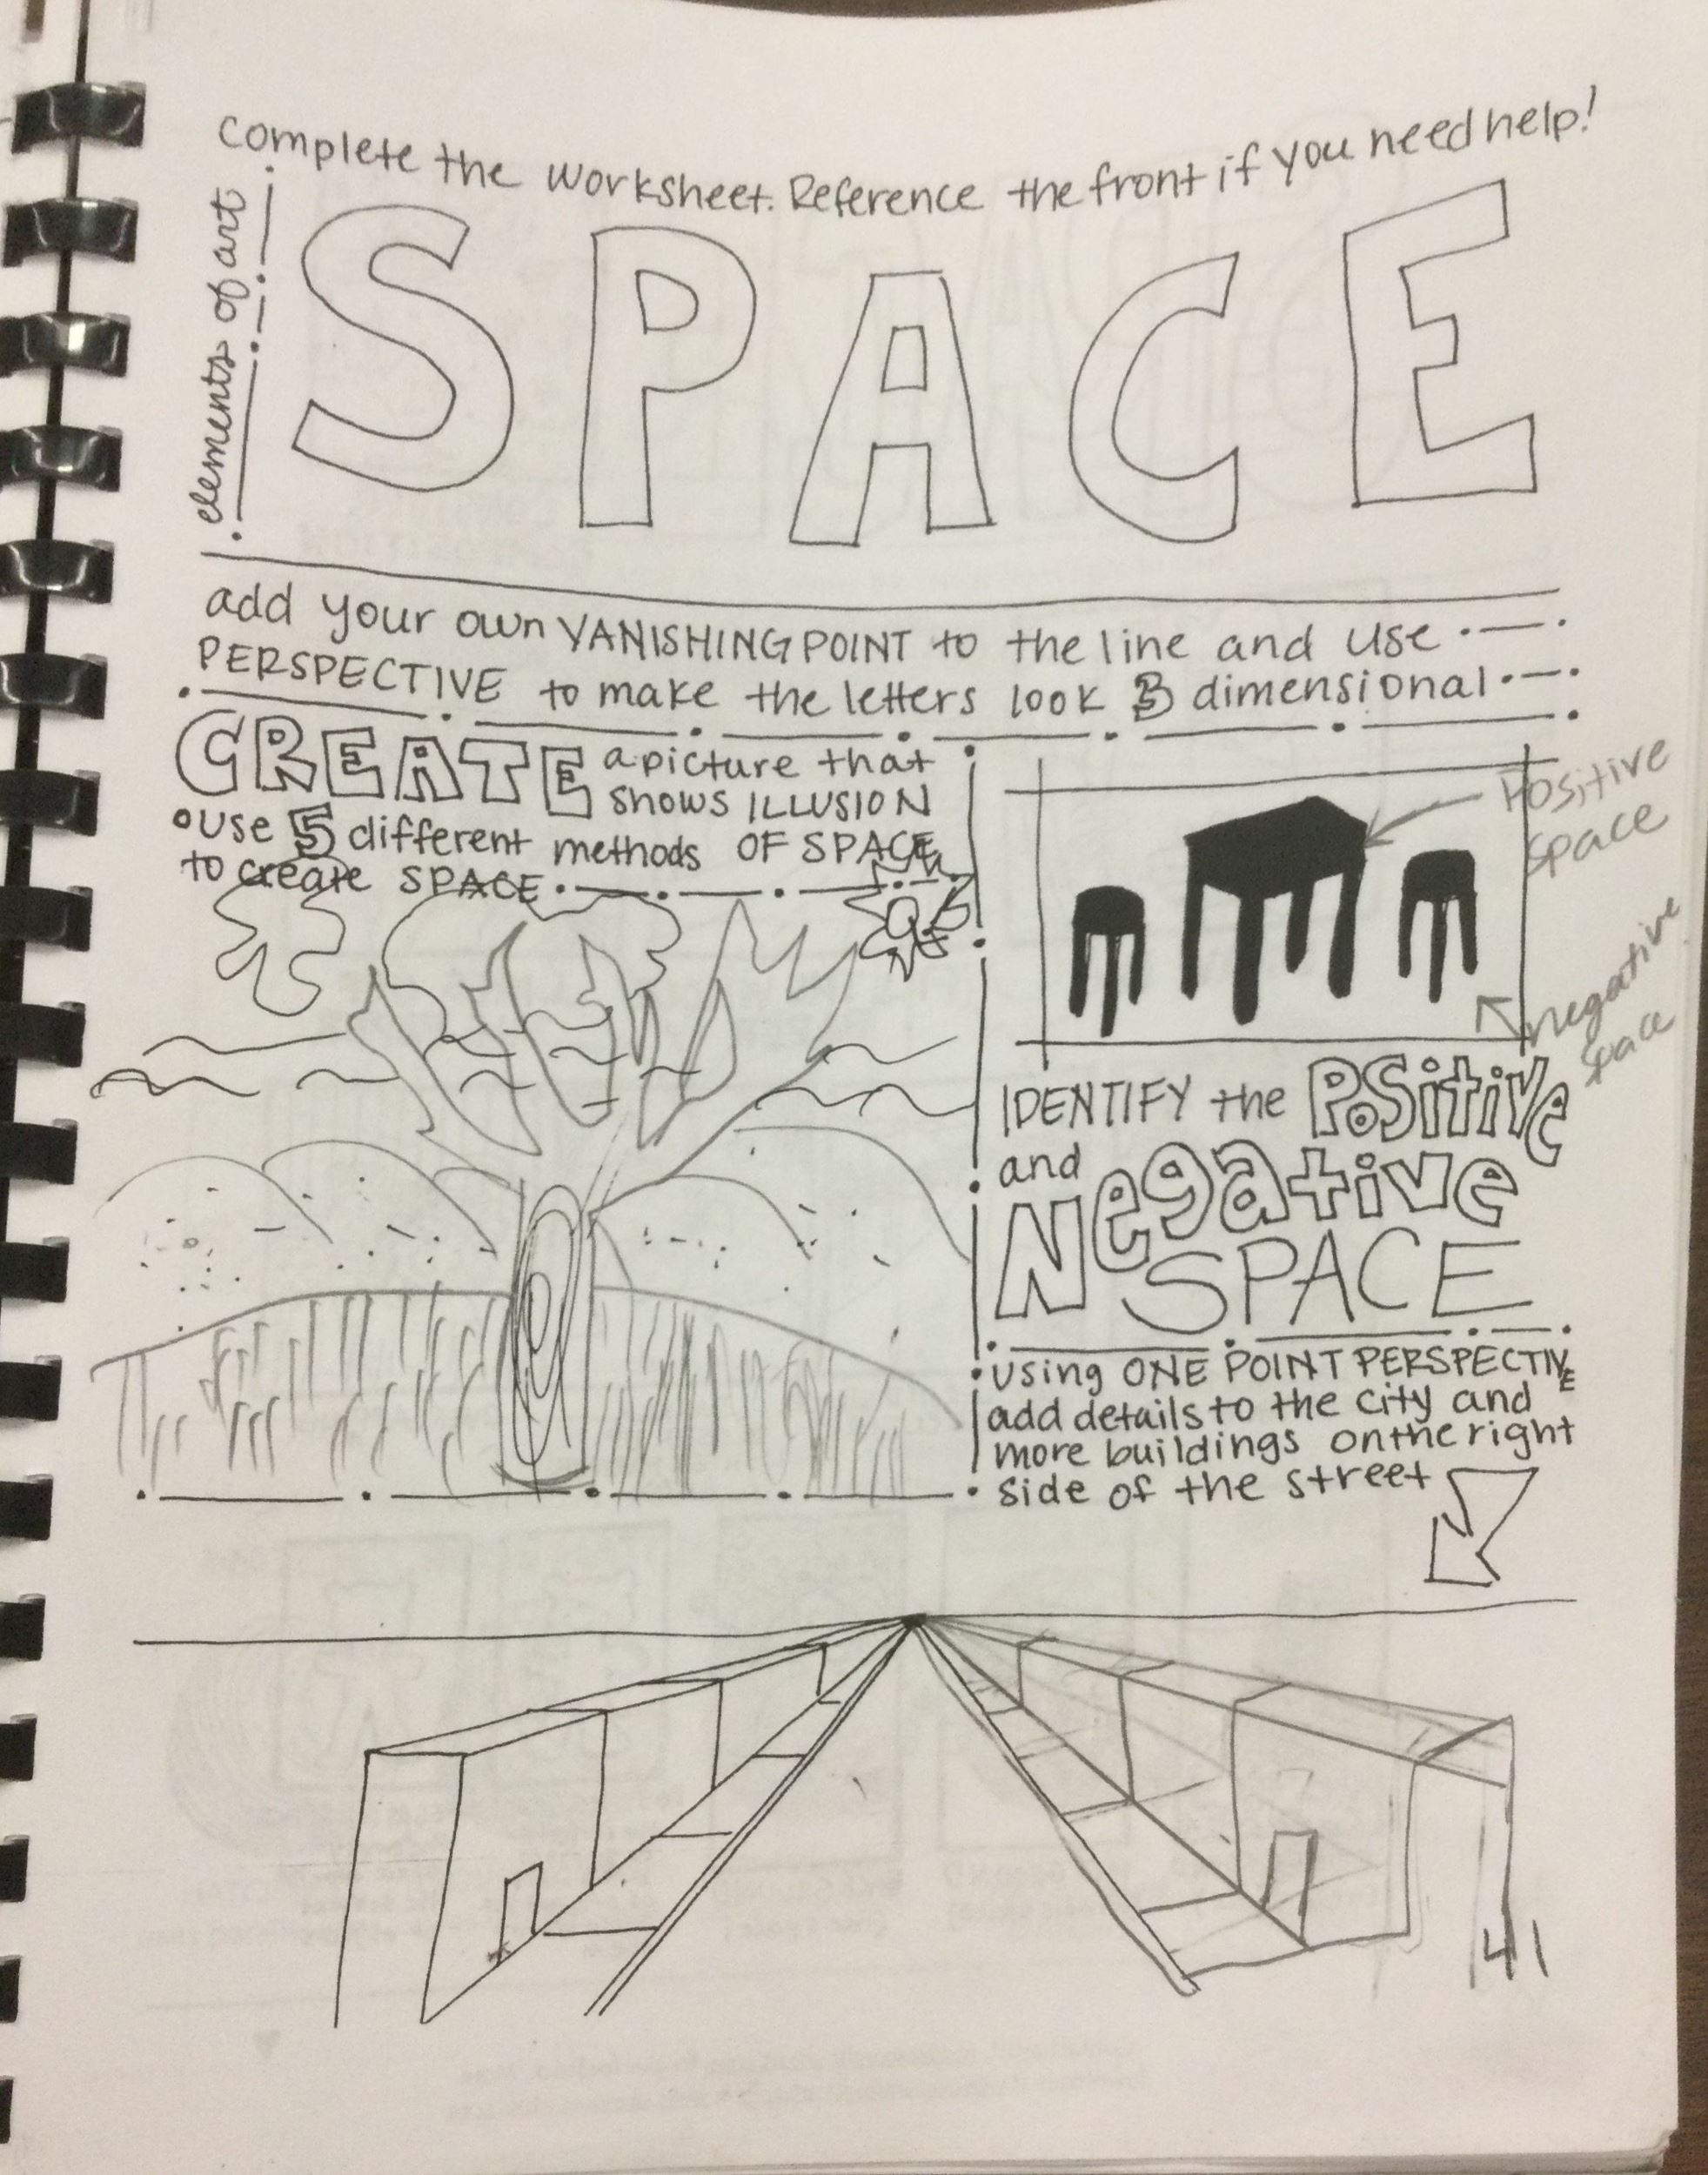 complete the worksheet. Reference the front if you need help!
elements of art
SPACE
add your own VANISHING POINT to the line and use
PERSPECTIVE to make the letters look 3 dimensional
CREATE a picture that
shows ILLUSION
OF SPACE
• use 5 different methods
to create SPACE
Positive
space
negative
space
IDENTIFY the Positive
and Negative
SPACE
• using ONE POINT PERSPECTIVE
add details to the city and
more buildings on the right
side of the street
41